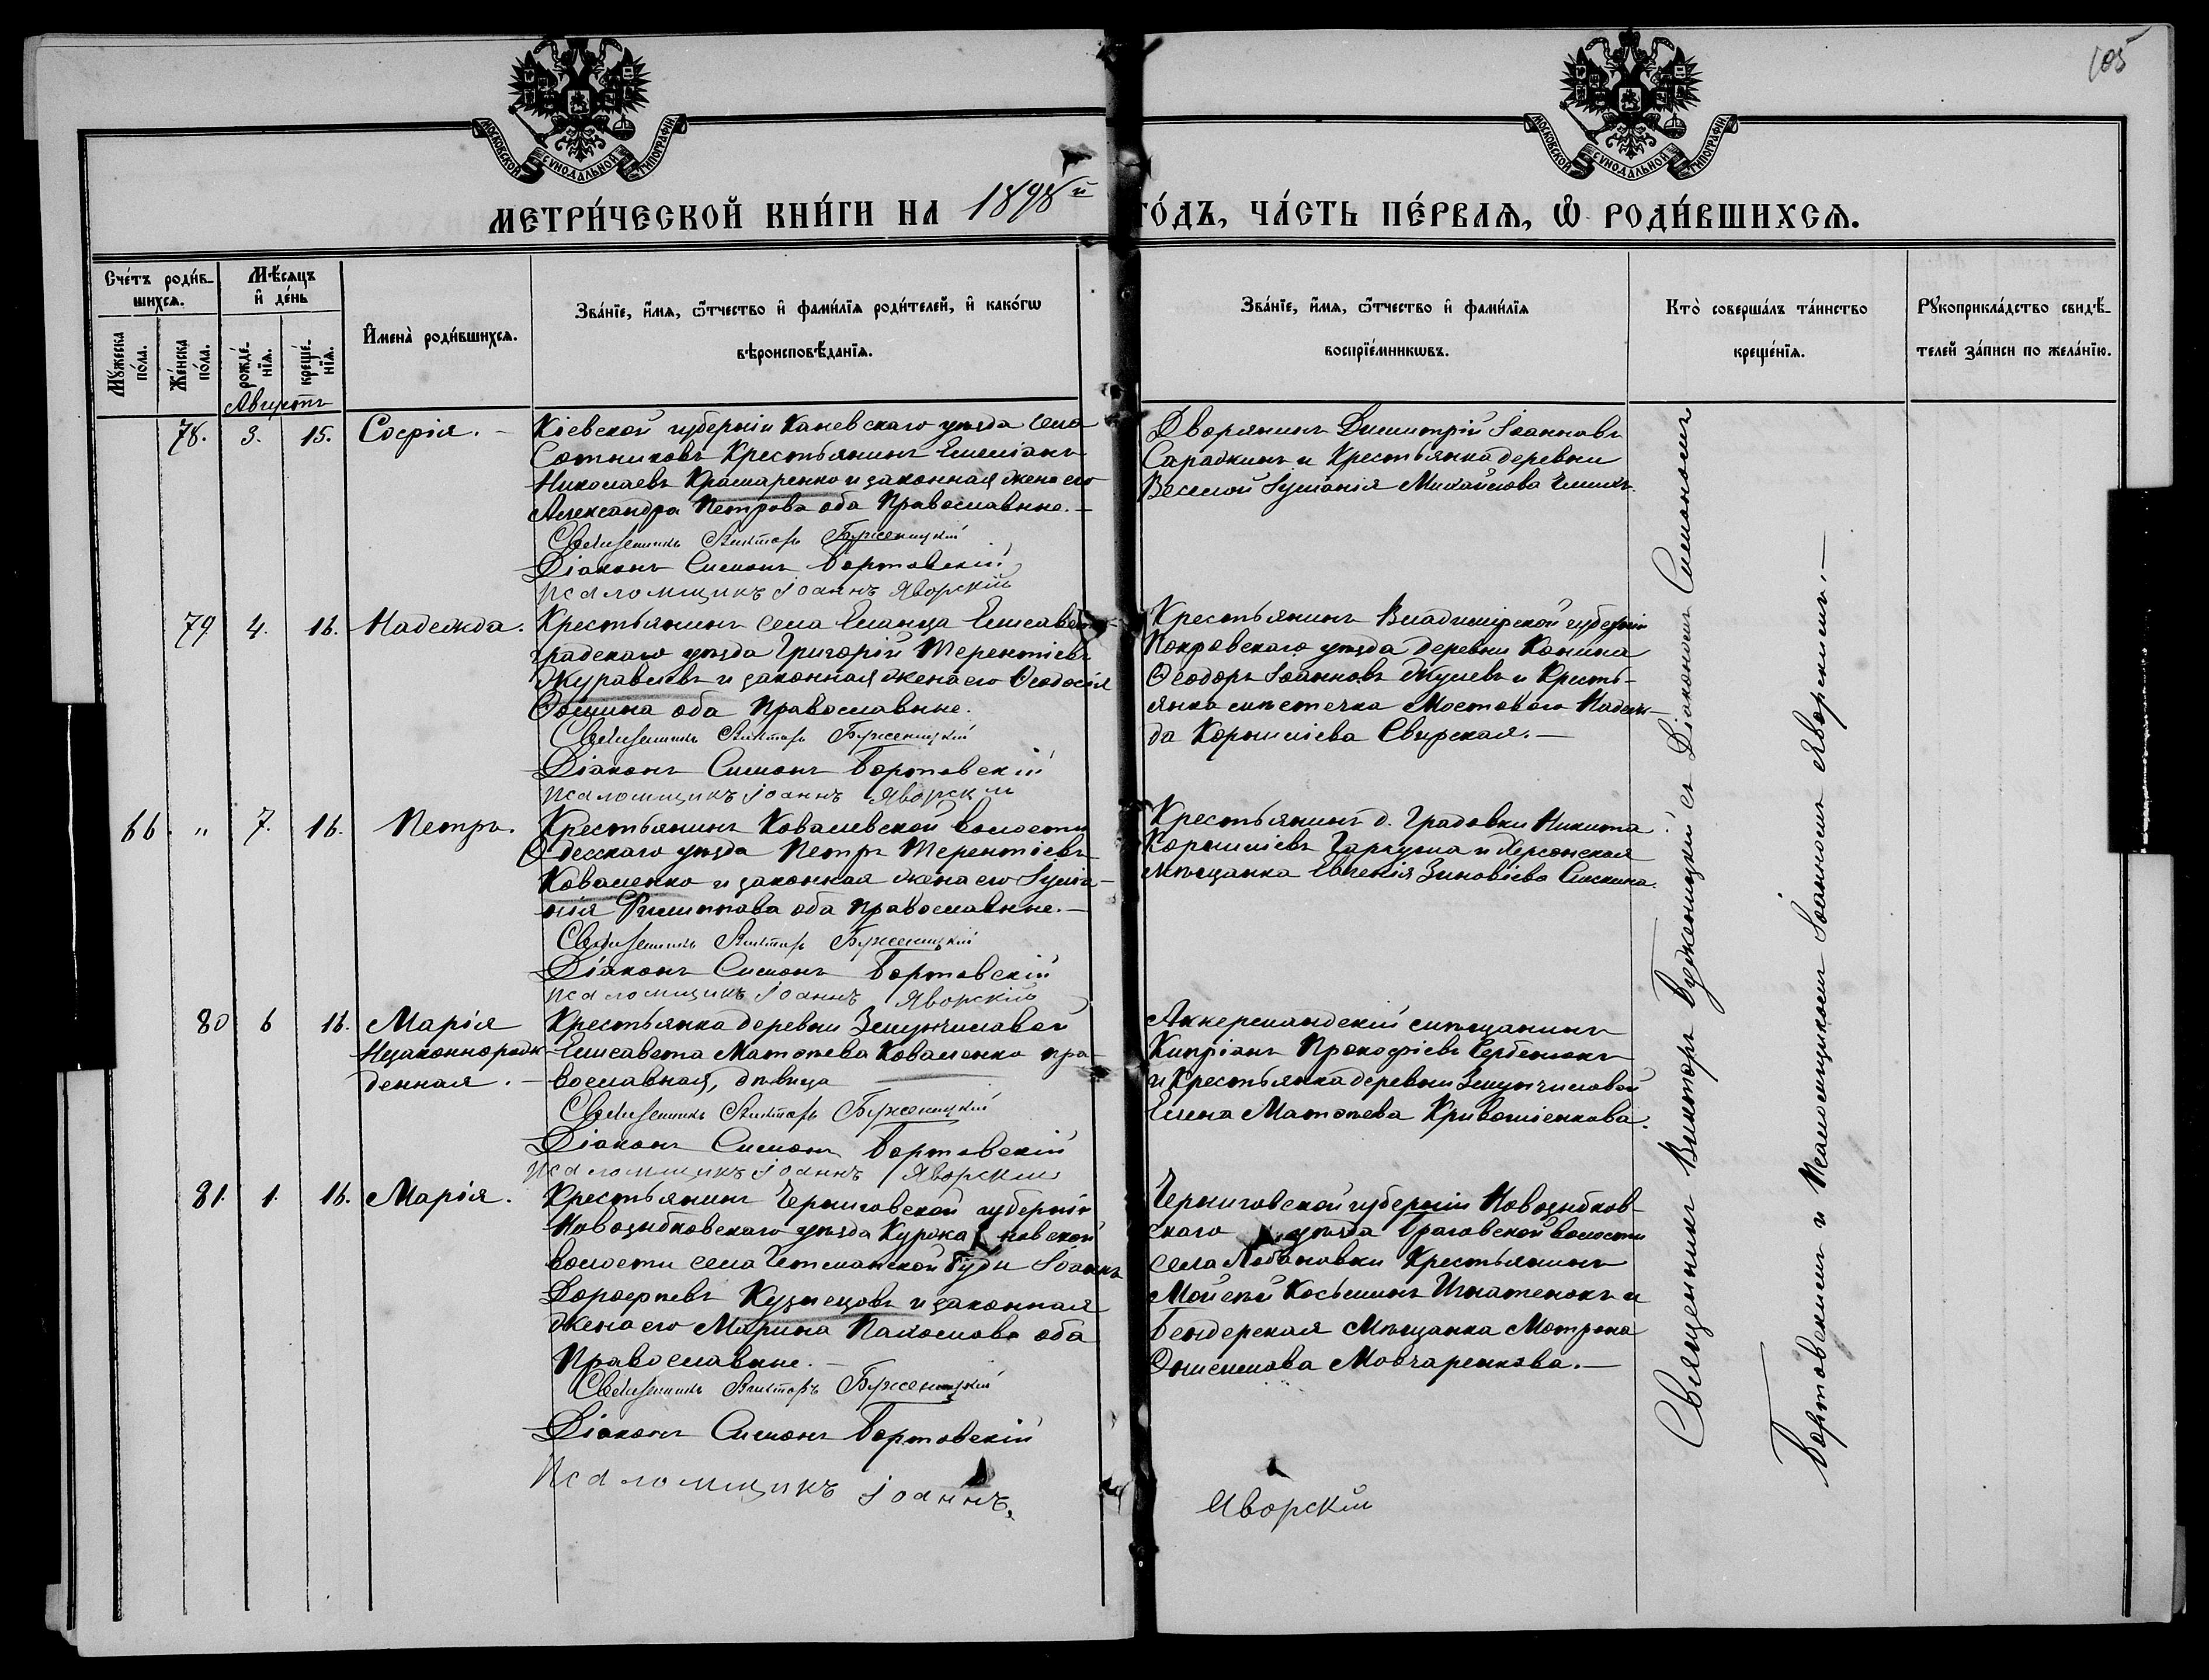 105
МОСКОВСКОЙ СѴНОДАЛЬНОЙ ТИПОГРАФІИ
МОСКОВСКОЙ СѴНОДАЛЬНОЙ ТИПОГРАФІИ
МЕТРИ́ЧЕСКОЙ КНИ́ГИ НА 1898й ГО́ДЪ, ЧА́СТЬ ПЕ́РВАѦ, Ѡ РОДИ́ВШИХСѦ.
Сче́тъ роди́в-
шихсѧ.
Мꙋ́жеска по́ла.
Же́нска по́ла.
Мѣ́сѧцъ
и҆ де́нь
рожде́-
нїѧ.
креще́-
нїѧ.
И҆мена̀ роди́вшихсѧ.
Зва́нїе, и҆́мѧ, ѻ҆́тчество и҆ фами́лїѧ роди́телей, и҆ како́гѡ
вѣроисповѣ́данїѧ.
Зва́нїе, и҆́мѧ, ѻ҆́тчество и҆ фами́лїѧ
воспрїе́мникѡвъ.
Кто̀ соверша́лъ та́инство
креще́нїѧ.
Рꙋкоприкла́дство свидѣ́-
телей за́писи по жела́нїю.
Августъ
78. 3. 15. Софія. Кіевской губерніи Каневскаго уѣзда села
Сотниковъ Крестьянинъ Емеліанъ
Николаевъ Крамаренко и законная жена его
Александра Петрова оба Православные.
Священникъ Викторъ Буженицкій
Діаконъ Симонъ Бортовскій
Псаломщикъ Іоаннъ Яворскій
Дворянинъ Димитрій Іоанновъ
и Крестьянка деревни
Веселой Іуліанія Михайлова
79 4. 16. Надежда. Крестьянинъ села Еланца Елисавет-
градскаго уѣзда Григорій Терентіевъ
Журавлевъ и законная жена его Ѳеодосія
Ѳомина оба Православные.
Священникъ Викторъ Буженицкій
Діаконъ Симонъ Бортовскій
Псаломщикъ Іоаннъ Яворскій
Крестьянинъ Владимірской губерніи
Покровскаго уѣзда деревни Конина
Ѳеодоръ Іоанновъ Жулевъ и Кресть-
янка мѣстечка Мостоваго Надеж-
да Корниліева Свирская.
66. " 7. 16. Петръ. Крестьянинъ Ковалевской волости
Одесскаго уѣзда Петръ Терентіевъ
Коваленко и законная жена его Іуліа-
нія Филиппова оба Православные.
Священникъ Викторъ Буженицкій
Діаконъ Симонъ Бортовскій
Псаломщикъ Іоаннъ Яворскій
Крестьянинъ д. Градовки Никита
Корниліевъ и Херсонская
мѣщанка Евгенія Зиновіева
80 6 16. Марія
Незаконнорож-
денная. Крестьянка деревни
Елисавета Матѳѣева Коваленко пра-
вославная, дѣвица
Священникъ Викторъ Буженицкій
Діаконъ Симонъ Бортовскій
Псаломщикъ Іоаннъ Яворскій
Аккерманскій мѣщанинъ
Кипріанъ Прокофіевъ Сербенюкъ
и Крестьянка деревни
Елена Матѳѣева Кривошенкова.
81. 1. 16. Марія. Крестьянинъ Черниговской губерніи
Новозыбковскаго уѣзда
волости села Гетманской Буды Іоаннъ
Дороѳеевъ Кузнецовъ и законная
жена его Марина Пахомова оба
Православные.
Священникъ Викторъ Буженицкій
Діаконъ Симонъ Бортовскій
Псаломщикъ Іоаннъ Яворскій
Черниговской губерніи Новозыбков-
скаго уѣзда волости
села Лобановки Крестьянинъ
Мойсей Косьминъ Игнатенокъ и
Бендерская Мѣщанка Мотрона
Онисимова Мовчаренкова.
Священникъ Викторъ Буженицкій съ Діакономъ Симономъ
Бортовскимъ и Псаломщикомъ Іоанномъ Яворскимъ.